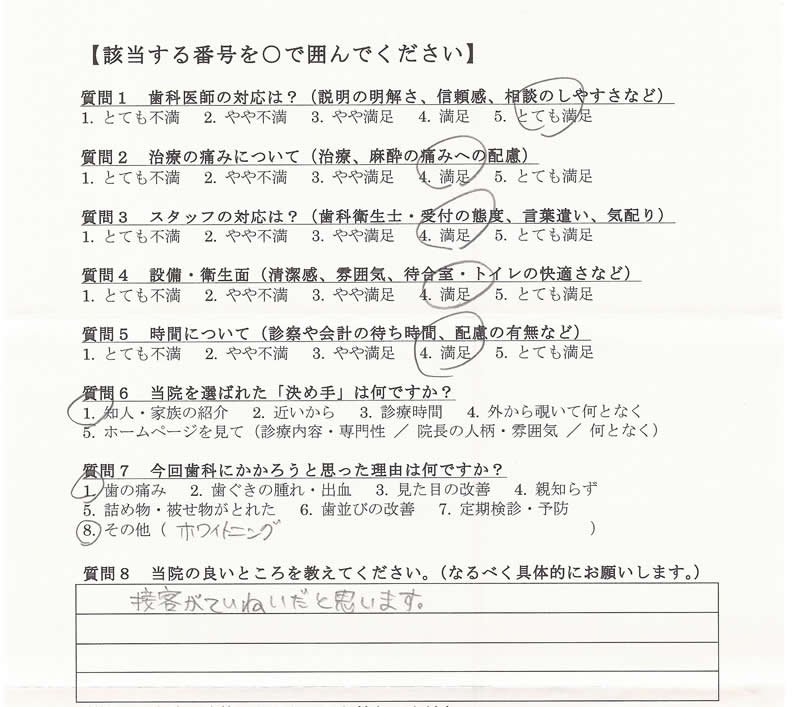 【該当する番号を〇で囲んでください】
質問1 歯科医師の対応は？（説明の明解さ、信頼感、相談のしやすさなど）
1. とても不満 2. やや不満 3. やや満足 4. 満足 5. とても満足
質問2 治療の痛みについて（治療、麻酔の痛みへの配慮）
1. とても不満 2. やや不満 3. やや満足 4. 満足 5. とても満足
質問3 スタッフの対応は？（歯科衛生士・受付の態度、言葉遣い、気配り）
1. とても不満 2. やや不満 3. やや満足 4. 満足 5. とても満足
質問4 設備・衛生面（清潔感、雰囲気、待合室・トイレの快適さなど）
1. とても不満 2. やや不満 3. やや満足 4. 満足 5. とても満足
質問5 時間について（診察や会計の待ち時間、配慮の有無など）
1. とても不満 2. やや不満 3. やや満足 4. 満足 5. とても満足
質問6 当院を選ばれた「決め手」は何ですか？
1. 知人・家族の紹介 2. 近いから 3. 診療時間 4. 外から覗いて何となく
5. ホームページを見て（診療内容・専門性 ／ 院長の人柄・雰囲気 ／ 何となく）
質問7 今回歯科にかかろうと思った理由は何ですか？
1. 歯の痛み 2. 歯ぐきの腫れ・出血 3. 見た目の改善 4. 親知らず
5. 詰め物・被せ物がとれた 6. 歯並びの改善 7. 定期検診・予防
8. その他（ ホワイトニング ）
質問8 当院の良いところを教えてください。（なるべく具体的にお願いします。）
接客がていねいだと思います。